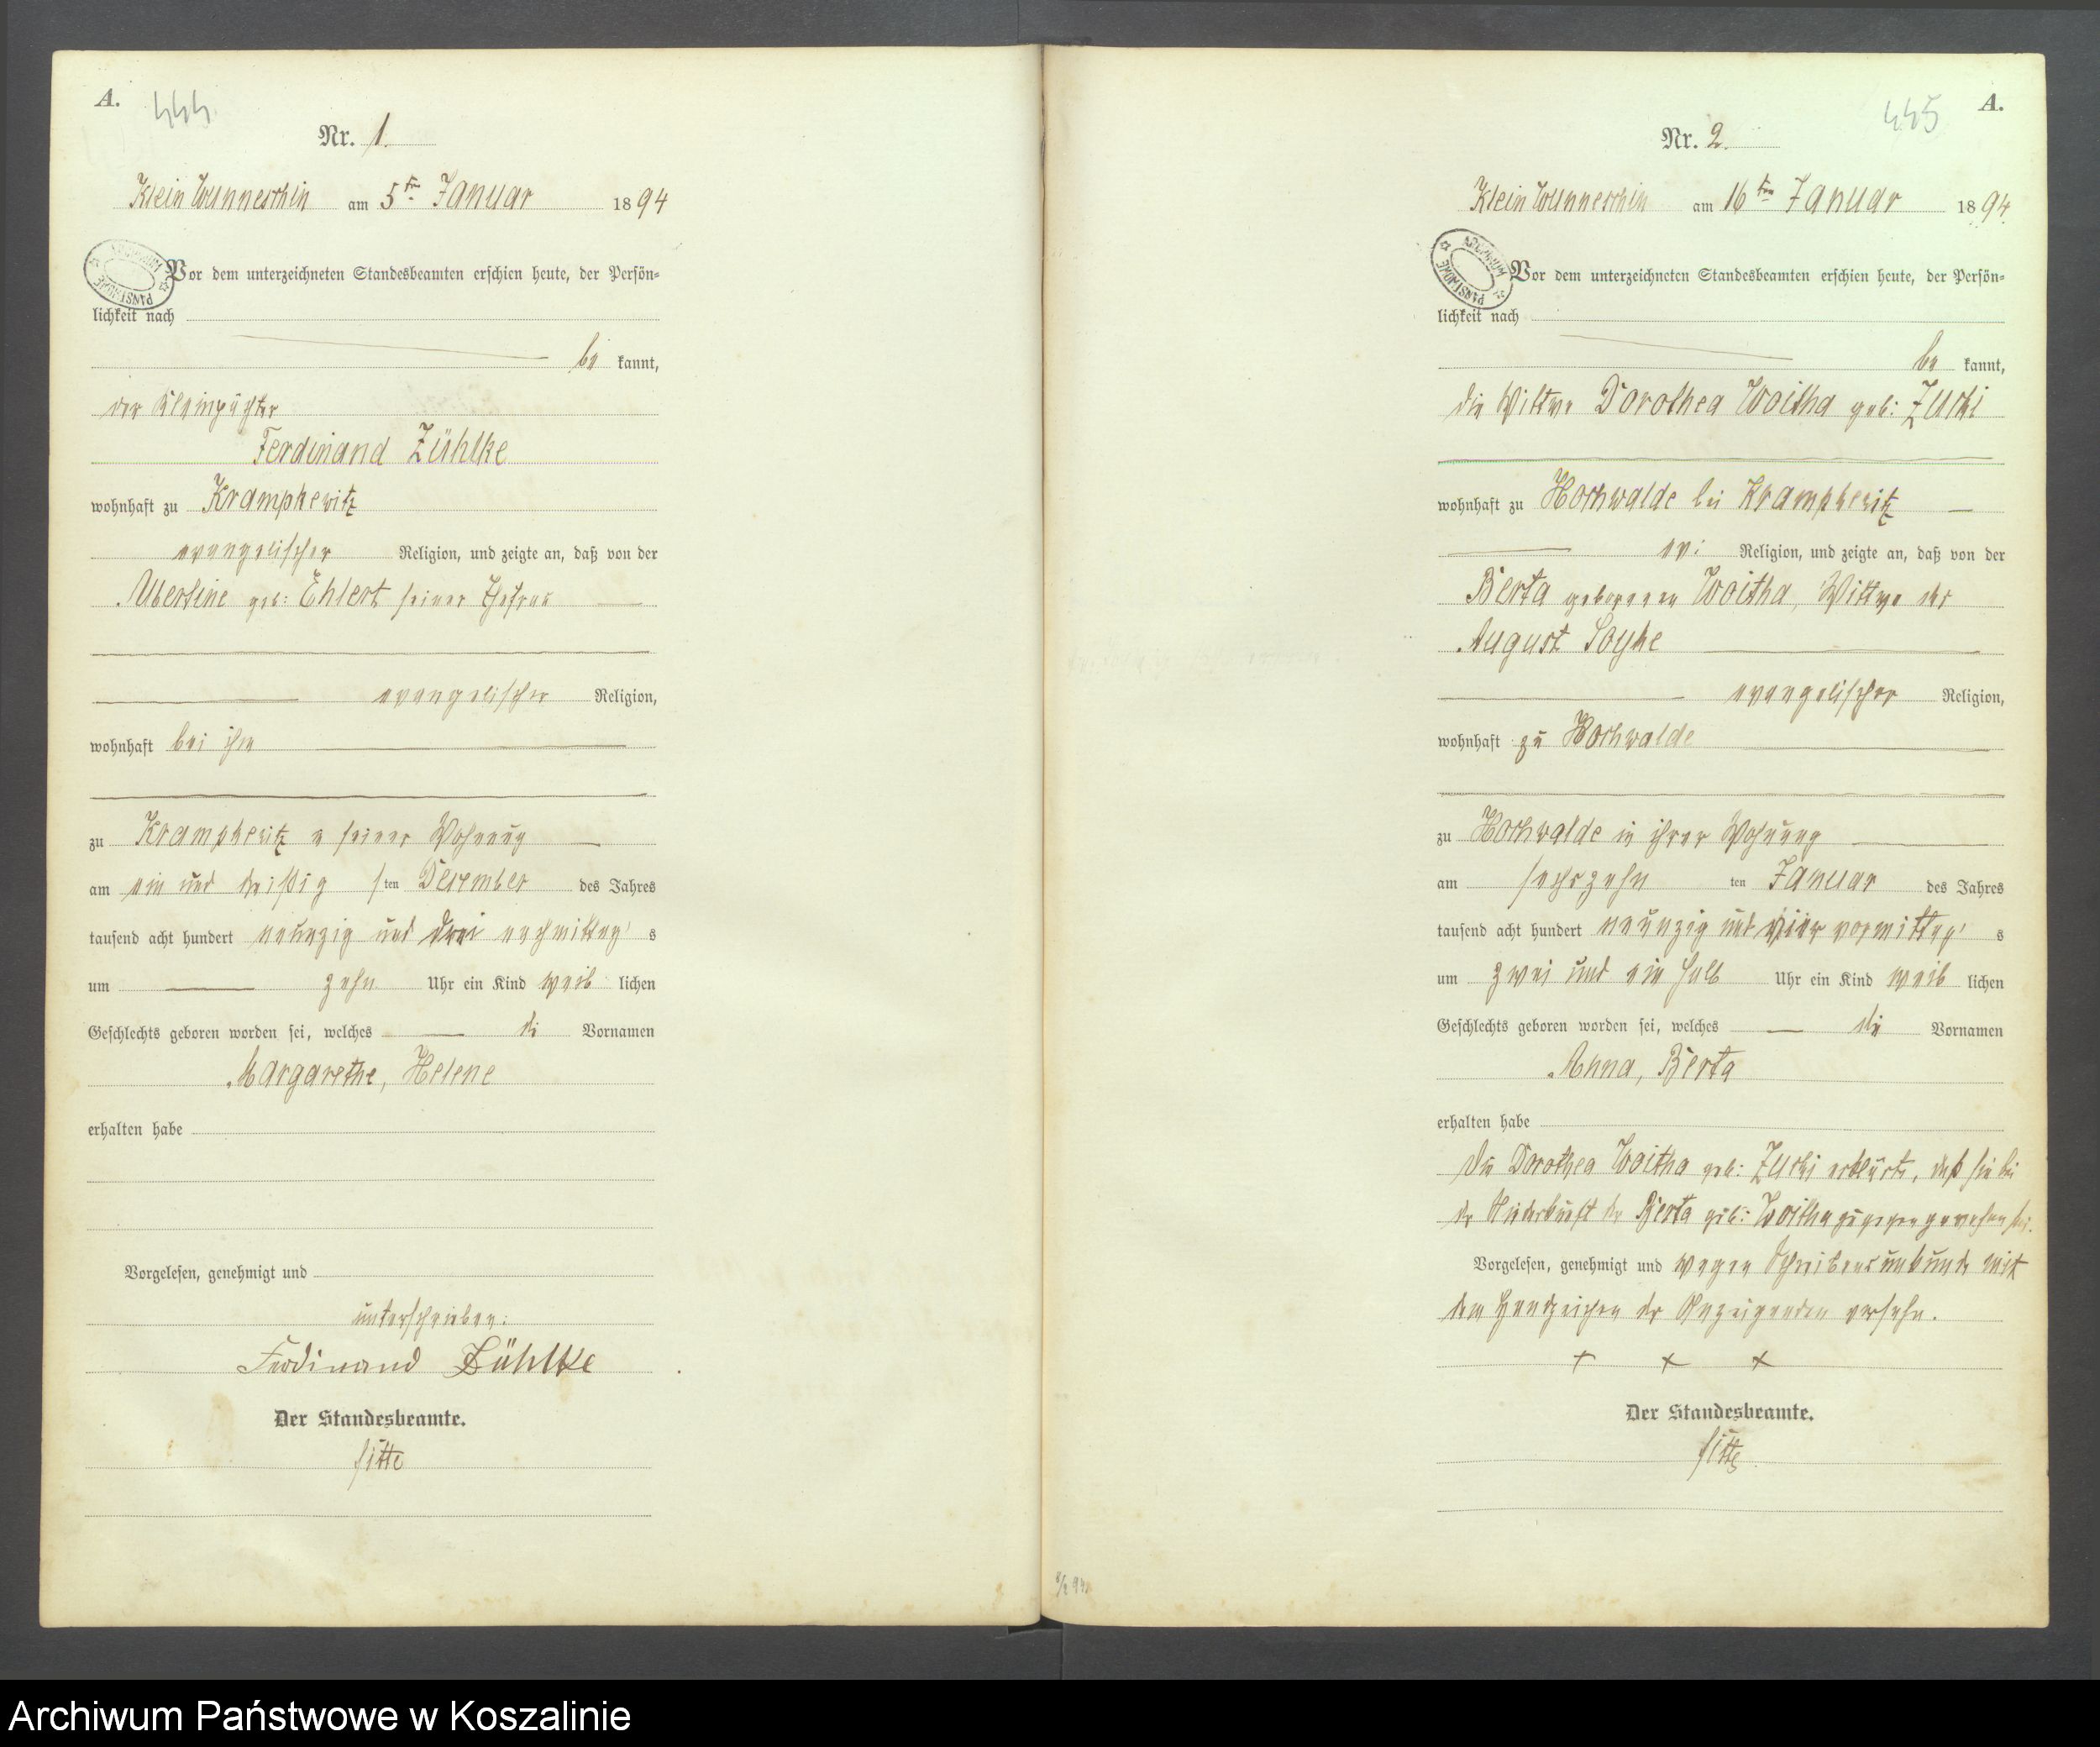 A.
444.
Nr. 1.
Klein Wunneschin am 5ten Januar 1894
Vor dem unterzeichneten Standesbeamten erschien heute, der Persön-
lichkeit nach
be kannt,
der Kleinpächter
Ferdinand Zühlke
wohnhaft zu Krampkewitz
evangelischer Religion, und zeigte an, daß von der
Albertine geb: Ehlert seiner Ehefrau
evangelischer Religion,
wohnhaft bei ihm
zu Krampkewitz in seiner Wohnung
am ein und dreißig sten Dezember des Jahres
tausend acht hundert neunzig und drei nachmittag's
um zehn Uhr ein Kind weib lichen
Geschlechts geboren worden sei, welches die Vornamen
Margarethe, Helene
erhalten habe
Vorgelesen, genehmigt und
unterschrieben:
Ferdinand Zühlke
Der Standesbeamte.
A.
445
Nr. 2.
Klein Wunneschin am 16ten Januar 1894.
Vor dem unterzeichneten Standesbeamten erschien heute, der Persön-
lichkeit nach
be kannt,
die Wittwe Dorothea Woitha geb: Zuchi
wohnhaft zu Hochwalde bei Krampkewitz
ev: Religion, und zeigte an, daß von der
Berta geborenen Woitha, Wittwe des
August Soyke
evangelischer Religion,
wohnhaft zu Hochwalde
zu Hochwalde in ihrer Wohnung
am sechszehn ten Januar des Jahres
tausend acht hundert neunzig und vier vormittag's
um zwei und ein halb Uhr ein Kind weib lichen
Geschlechts geboren worden sei, welches die Vornamen
Anna, Berta
erhalten habe
Die Dorothea Woitha geb: Zuchi erklärte, daß sie bei
der Niederkunft der Berta geb: Woitha zugegen gewesen sei.
Vorgelesen, genehmigt und wegen Schreibensunkunde mit
dem Handzeichen der Anzeigenden versehn.
+ + +
Der Standesbeamte.
Archiwum Państwowe w Koszalinie